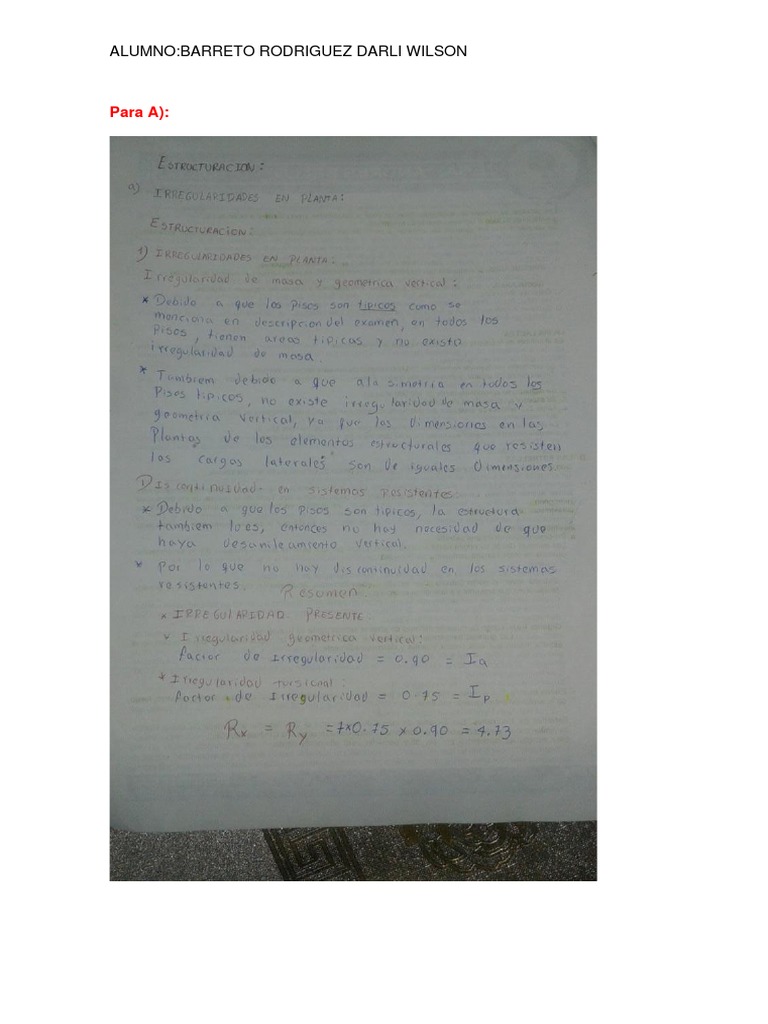 ALUMNO:BARRETO RODRIGUEZ DARLI WILSON
Para A):
ESTRUCTURACION:
a) IRREGULARIDADES EN PLANTA:
ESTRUCTURACION:
1) IRREGULARIDADES EN PLANTA:
Irregularidad de masa y geometrica vertical:
* Debido a que los Pisos son tipicos como se
menciona en descripcion del examen, en todos los
Pisos, tienen areas tipicas y no existe
irregularidad de masa.
* Tambiem debido a que a la simetria en todos los
Pisos tipicos, no existe irregularidad de masa y
geometria vertical, ya que las Dimensiones en las
Plantas de los elementos estructurales que resisten
las cargas laterales son de iguales Dimensiones.
Discontinuidad en sistemas resistentes:
* Debido a que los Pisos son tipicos, la estructura
tambiem lo es, entonces no hay necesidad de que
haya vertical.
* Por lo que no hay discontinuidad en los sistemas
resistentes.
Resumen
* IRREGULARIDAD PRESENTE
v Irregularidad geometrica vertical:
factor de Irregularidad = 0.90 = Ia
* Irregularidad torsional:
factor de Irregularidad = 0.75 = Ip
Rx = Ry = 7x0.75 x 0.90 = 4.73